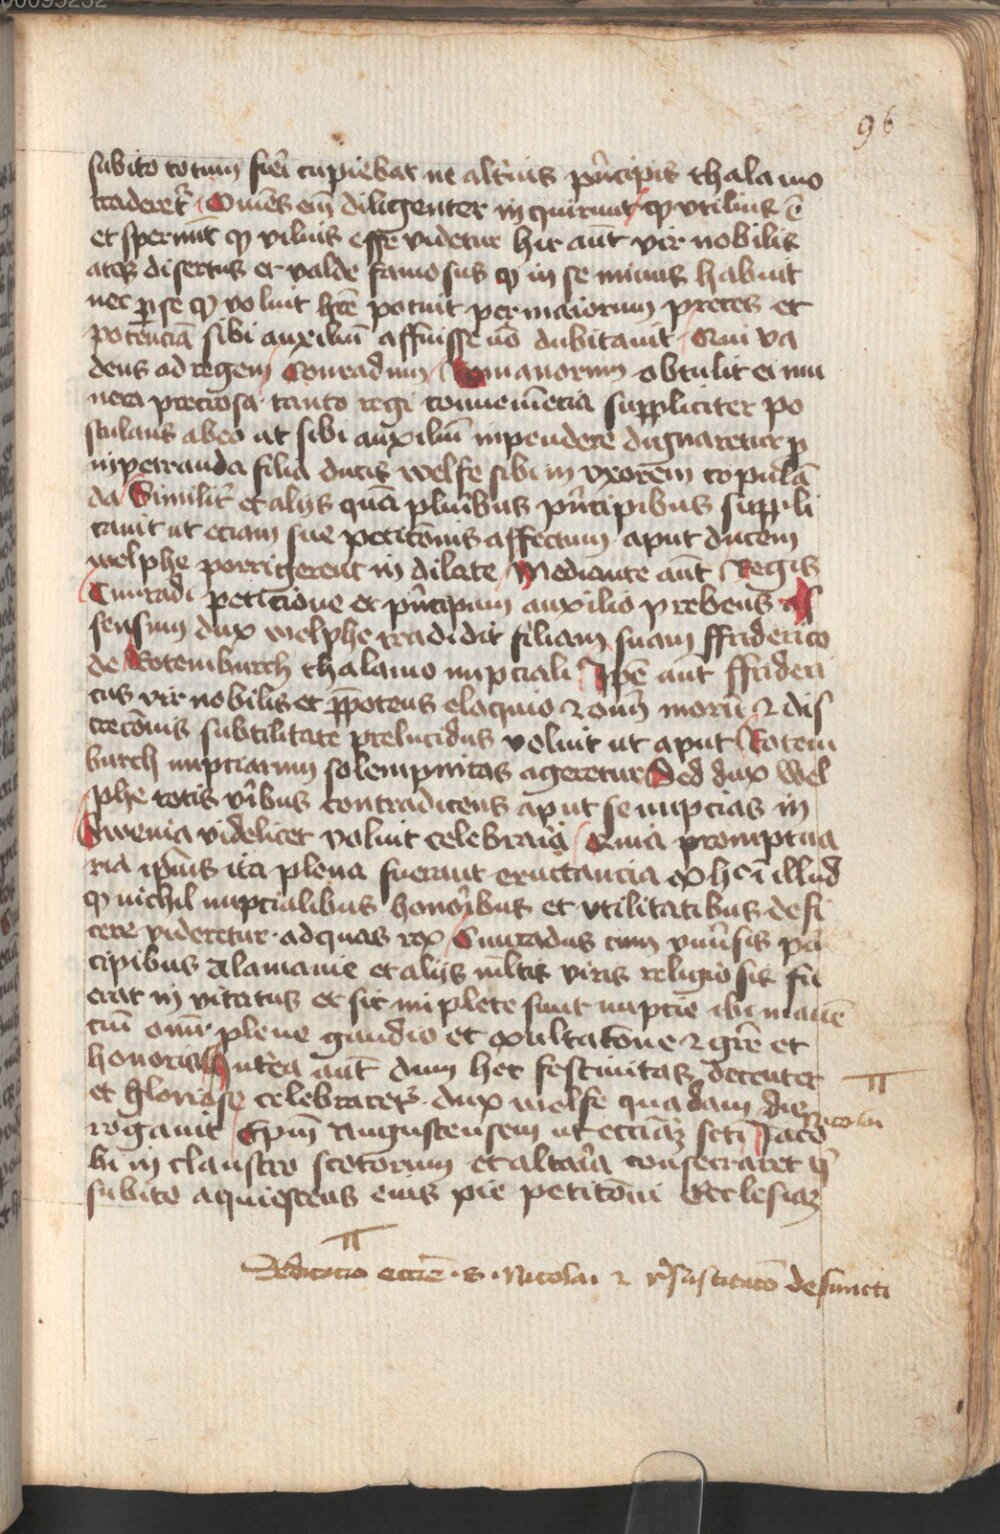 96
subito totum fieri cupiebat ne alterius principis thalamo
traderetr Omēs em̄ diligenter inquirunt qd vtilius ē
et spernūt qd vilius esse videtur hic aūt vir nobilis
atqz disertus et valde famosus qd in se minus habuit
nec p se qd voluit hr̄e potuit per maiorum preces et
potenciā sibi auxiliū affuisse nō dubitauit Qui va
dens ad regem Conradum Romanorum obtulit ei mu
nera preciosa tanto regi conueniencia suppliciter po
stulans ab eo ut sibi auxiliū inpendere dignaretur p
inpetranda filia ducis welfe sibi in vxorem copulā
da Similit̄ et alijs quā pluribus pn̄cipibus suppli
cauit ut eciam sue peticōnis affectum aput ducem
welphe porrigerent in dilate Mediante aūt Regis
Cunradi peticione et pn̄cipum auxilio prebens as
sensum dux welphe tradidit filiam suam ffriderico
de Rotemburch thalamo nupciali Ipē aūt ffrideri
cus vir nobilis et p̄potens eloquio ⁊ oīm morū ⁊ dis
crecōnis subtilitate prelucidus voluit ut aput Rotem
burch nupciarum solempnitas ageretur Sed dux Wel
phe totis viribus contradicens aput se nupcias in
Sweuia videlicet voluit celebrari Quia promptua
ria ipīus ita plena fuerant eructancia ex hoc ī illud
qd nichil nupcialibus honoribus et vtilitatibus defi
cere videretur ad quas rex Cunradus cum vniūsis pn̄
cipibus Alamanie et alijs ml̄tis viris religiosis fu
erat in vitatus et sic inplete sunt nupcie ibi
cum omī plene gaudio et exultacōne ⁊ grē et
honoris Interea aūt dum hec festiuitas decenter
et gloriose celebraretr dux welfe quadam die
rogauit Epm̄ Augustensem ut ecciāz scti Jaco
Nicolai
bi in claustro scotorum et altaria consecraret q
subito aquiescens eius pie peticōni Ecclesiaz
Dedicacio eccie S Nicolai ⁊ defuncti